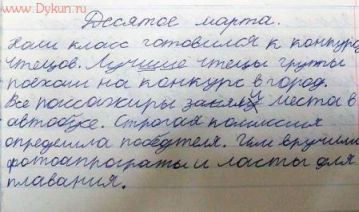 www.Dykun.ru
Десятое марта.
Наш класс готовился к конкурсу
чтецов. Лучшие чтецы группы
поехали на конкурс в город.
Все пассажиры заняли места в
автобусе. Строгая комиссия
определила победителя. Им вручили
фотоапараты и ласты для
плавания.